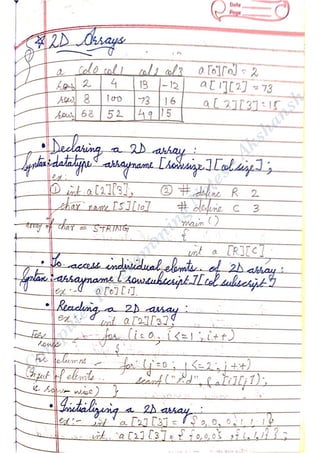 Date
Page
* 2D Arrays
a col0 col1 col2 col3 a[0][0] = 2
row0 2 4 13 -12 a[1][2] = 73
row1 8 100 73 16 a[2][3] = 15
row2 62 52 49 15
• Declaring a 2D array :
Syntax: datatype arrayname [rowsize][col size] ;
ex:
① int a[2][3], ② # define R 2
char name [5][10] # define C 3
array of char = STRING main ()
{
int a [R][C]
• To access individual elemts. of 2D array :
Syntax: arrayname [row subscript][col subscript]
ex:- a[0][1].
• Reading a 2D array :
ex:- int a[2][3];
For rows :- for (i=0; i<=1; i++)
{
For columns - for (j=0; j<=2; j++)
(Input of elemts. scanf("%d", &a[i][j]);
is row-wise) }
• Initializing a 2D array :
ex:- int a[2][3] = {0,0,0,1,1,1};
int a[2][3] = {{0,0,0},{1,1,1}};